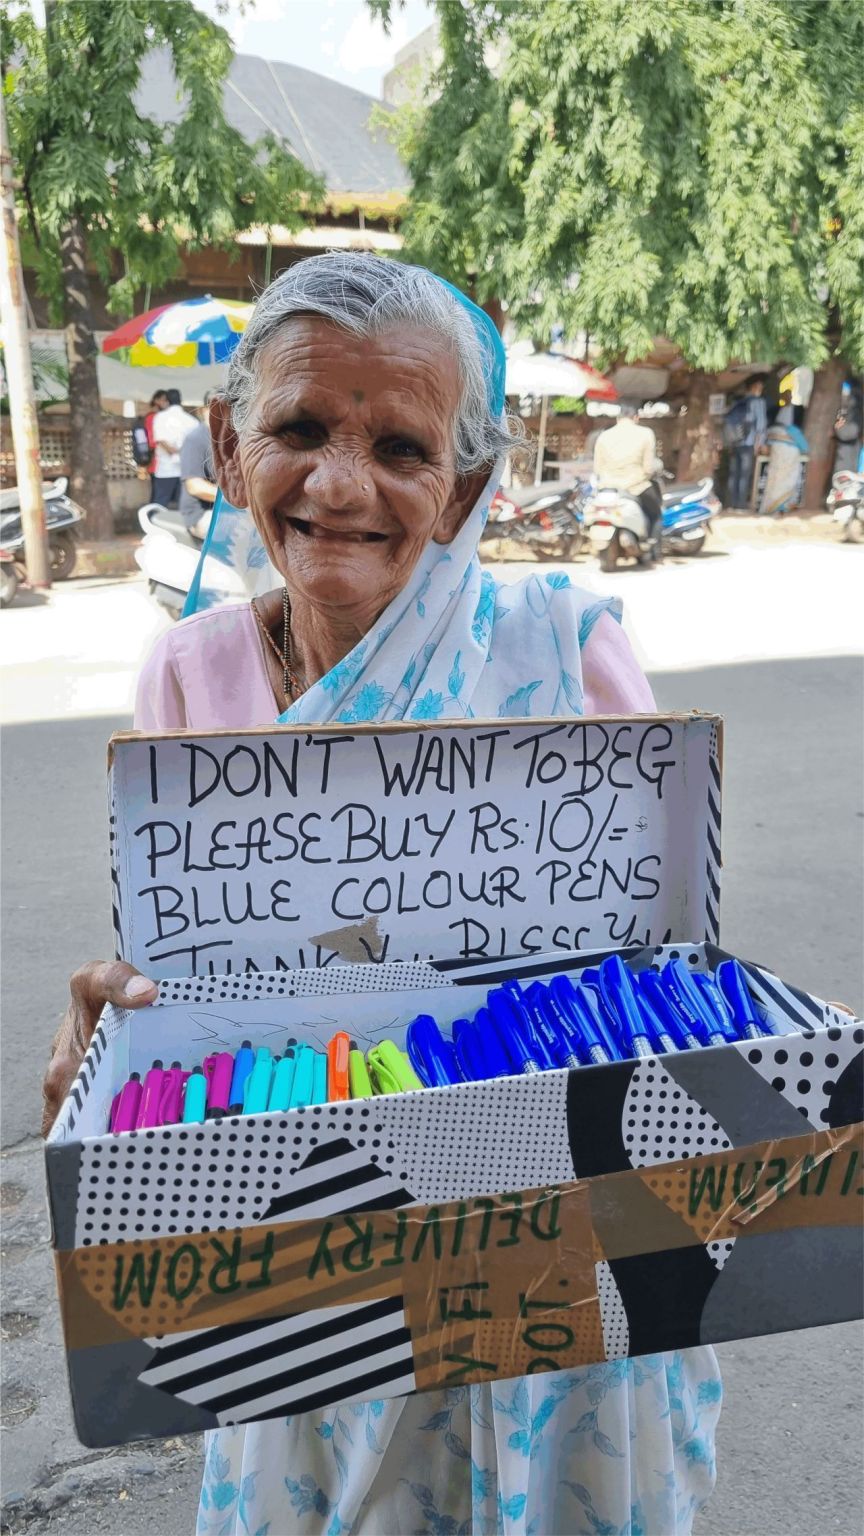 I DON'T WANT TO BEG
PLEASE BUY Rs:10/=
BLUE COLOUR PENS
THANK You BLESS You
DELIVERY FROM